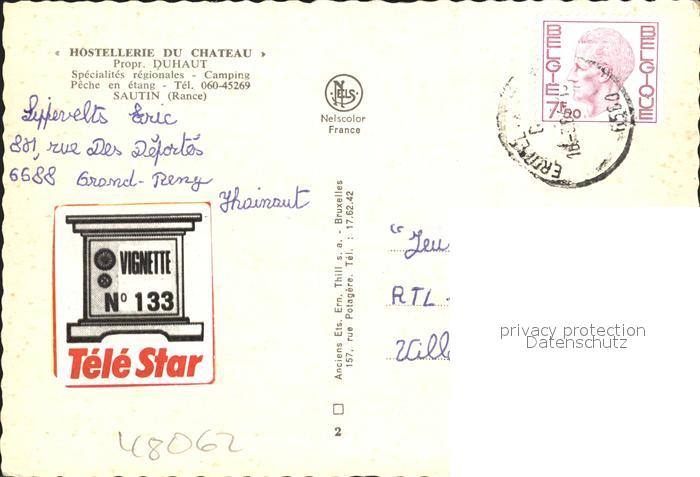 « HOSTELLERIE DU CHATEAU »
Propr. DUHAUT
Spécialités régionales - Camping
Pêche en étang - Tél. 060-45269
SAUTIN (Rance)
Eric
881, rue Des Déportés
6688 Grand-Reng
Hainaut
NELS
Nelscolor
France
BELGIE BELGIQUE
7F50
6560
VIGNETTE
N° 133
Télé Star
Anciens Ets. Ern. Thill s. a. - Bruxelles
157, rue Potagère. Tél. : 17.62.42
2
"Jeu
RTL
Vill
privacy protection
Datenschutz
48062